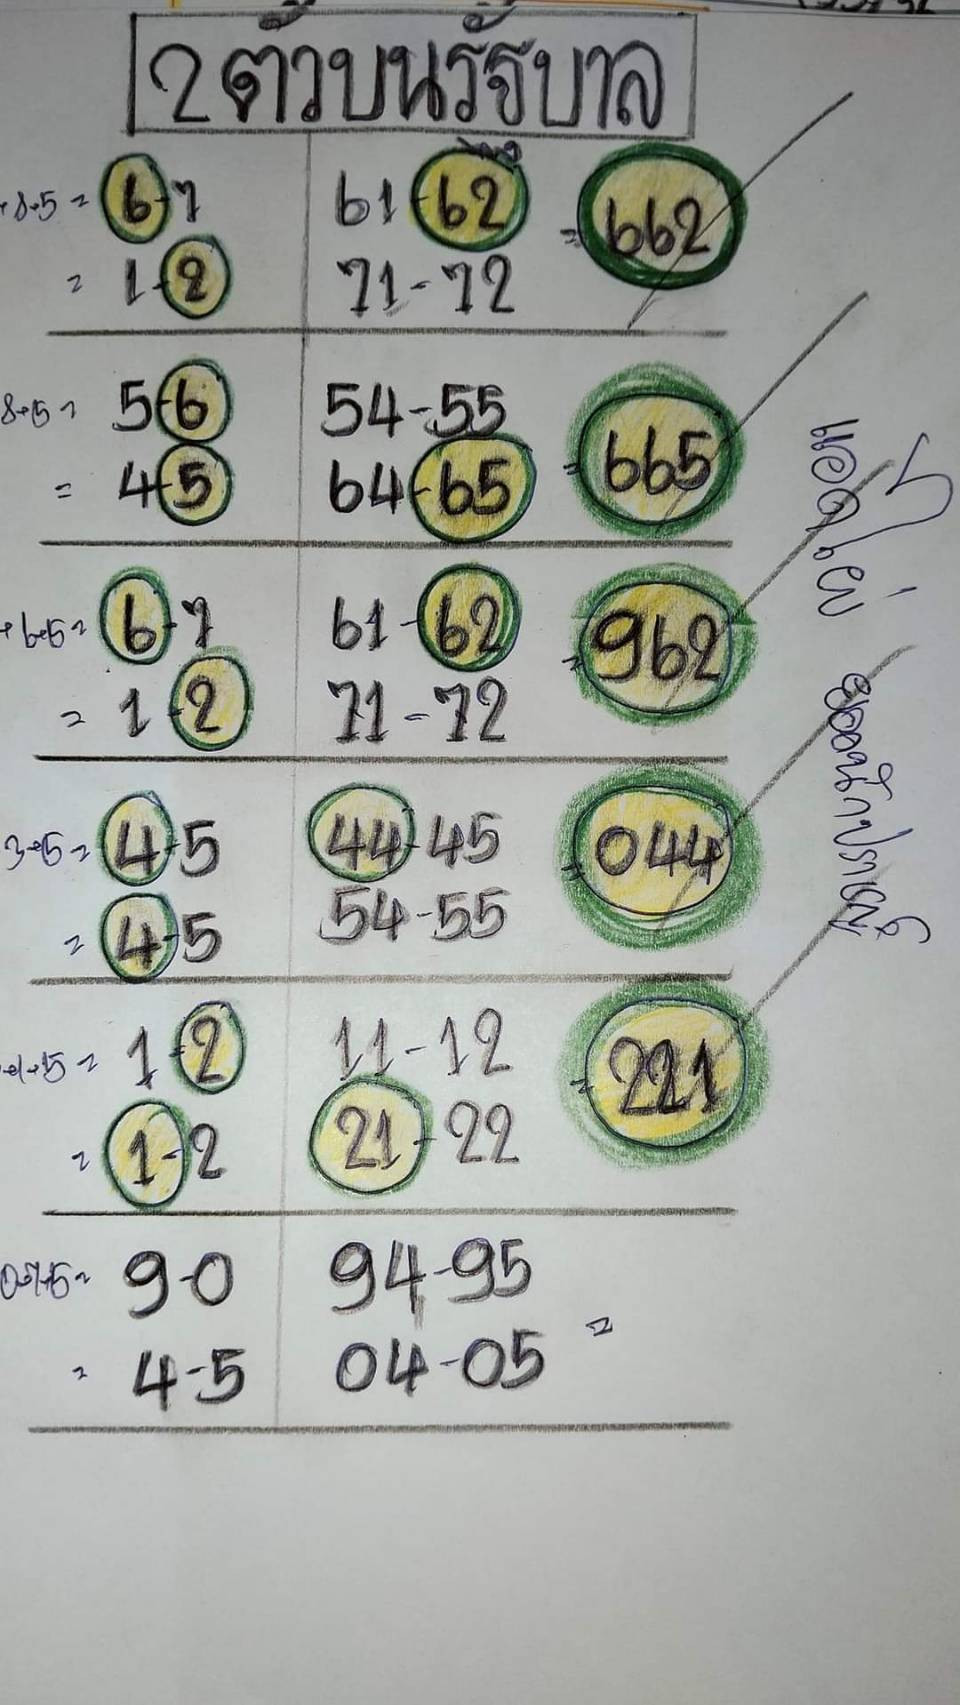 2ตัวบนรัฐบาล
+8+5= 6-7 61-62 = 662
= 1-2 71-72
8+5= 5-6 54-55 = 665
= 4-5 64-65
+6+5= 6-7 61-62 = 962
= 1-2 71-72
3+5= 4-5 44-45 = 044
= 4-5 54-55
+5= 1-2 11-12 = 221
= 1-2 21-22
0+7+5= 9-0 94-95 =
= 4-5 04-05